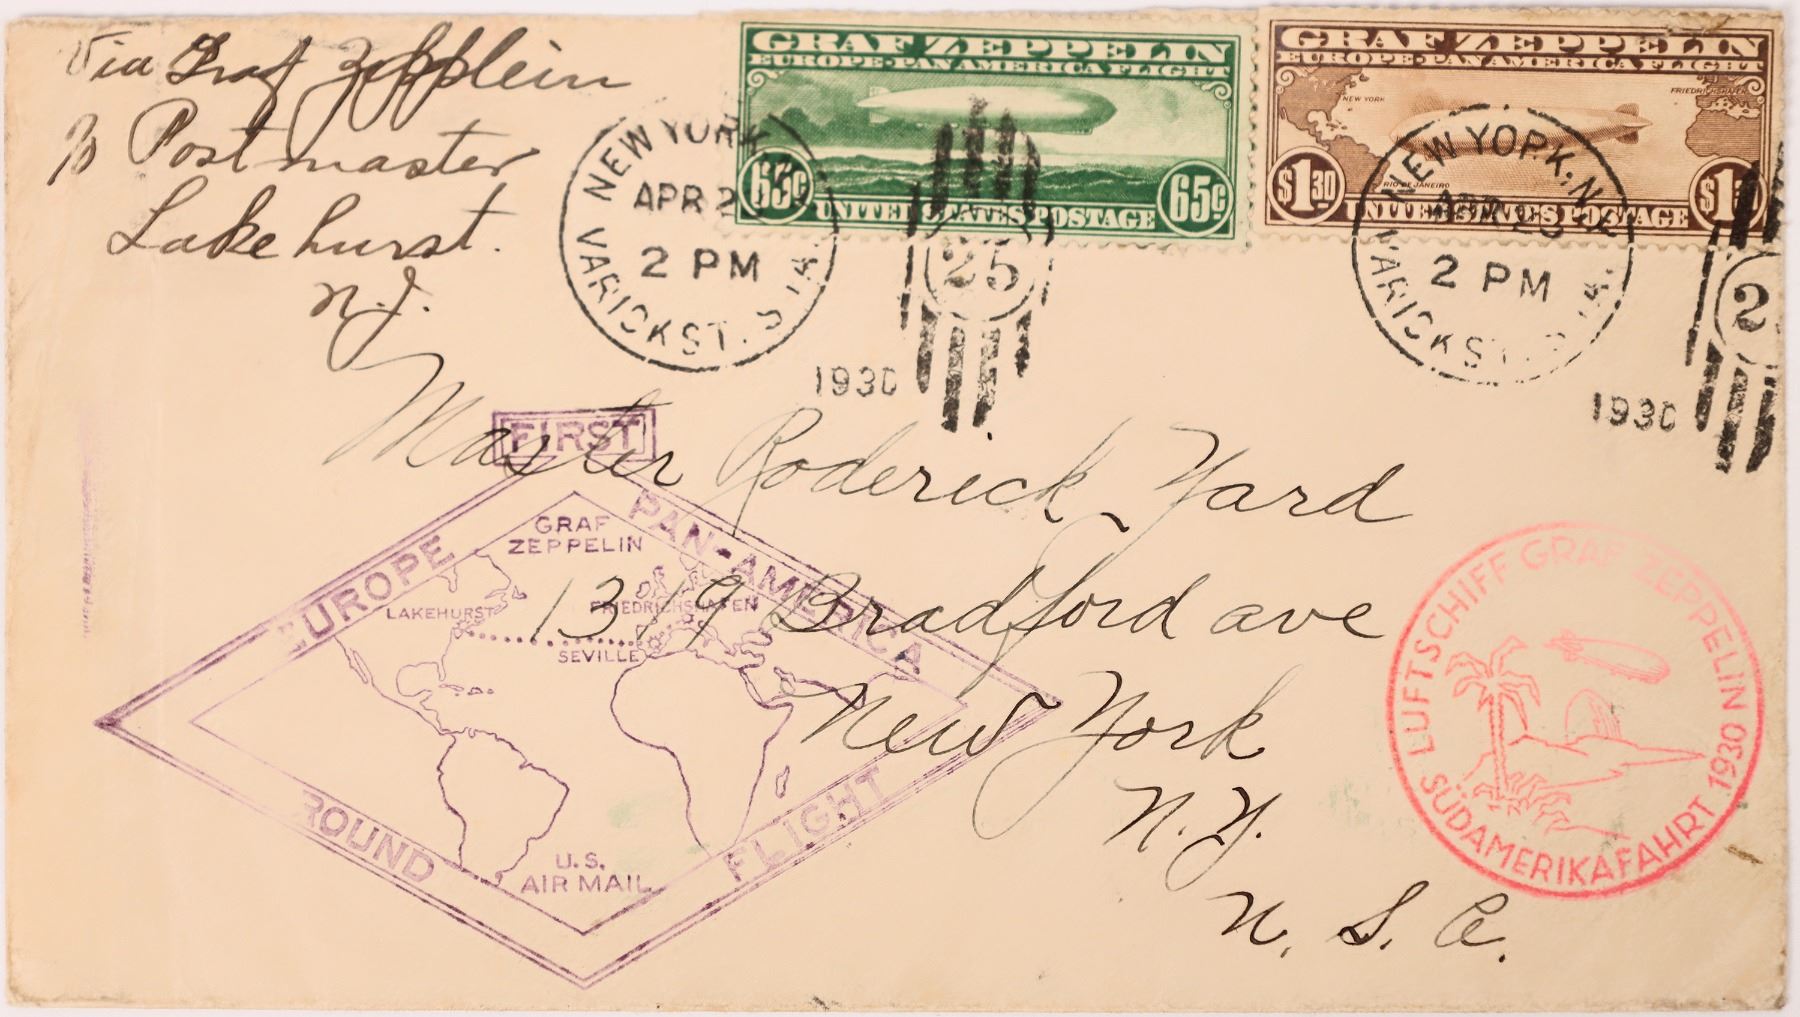 Via Graf Zepplein
% Postmaster
Lakehurst.
N.J.
GRAF ZEPPELIN
EUROPE-PAN AMERICA FLIGHT
65¢ 65¢
UNITED STATES POSTAGE
GRAF ZEPPELIN
EUROPE-PAN AMERICA FLIGHT
NEW YORK
FRIEDRICHSHAFEN
RIO DE JANEIRO
$1.30
UNITED STATES POSTAGE
NEW YORK, N.Y.
APR 2
2 PM
VARICK ST. STA.
25
1930
NEW YORK, N.Y.
APR
2 PM
VARICK ST. STA.
2
1930
Master Roderick Yard
1319 Bradford ave
New York
N.Y.
U.S.A.
FIRST
EUROPE PAN-AMERICA
GRAF
ZEPPELIN
LAKEHURST
FRIEDRICHSHAFEN
SEVILLE
U.S.
AIR MAIL
ROUND FLIGHT
LUFTSCHIFF GRAF ZEPPELIN
SÜDAMERIKAFAHRT 1930